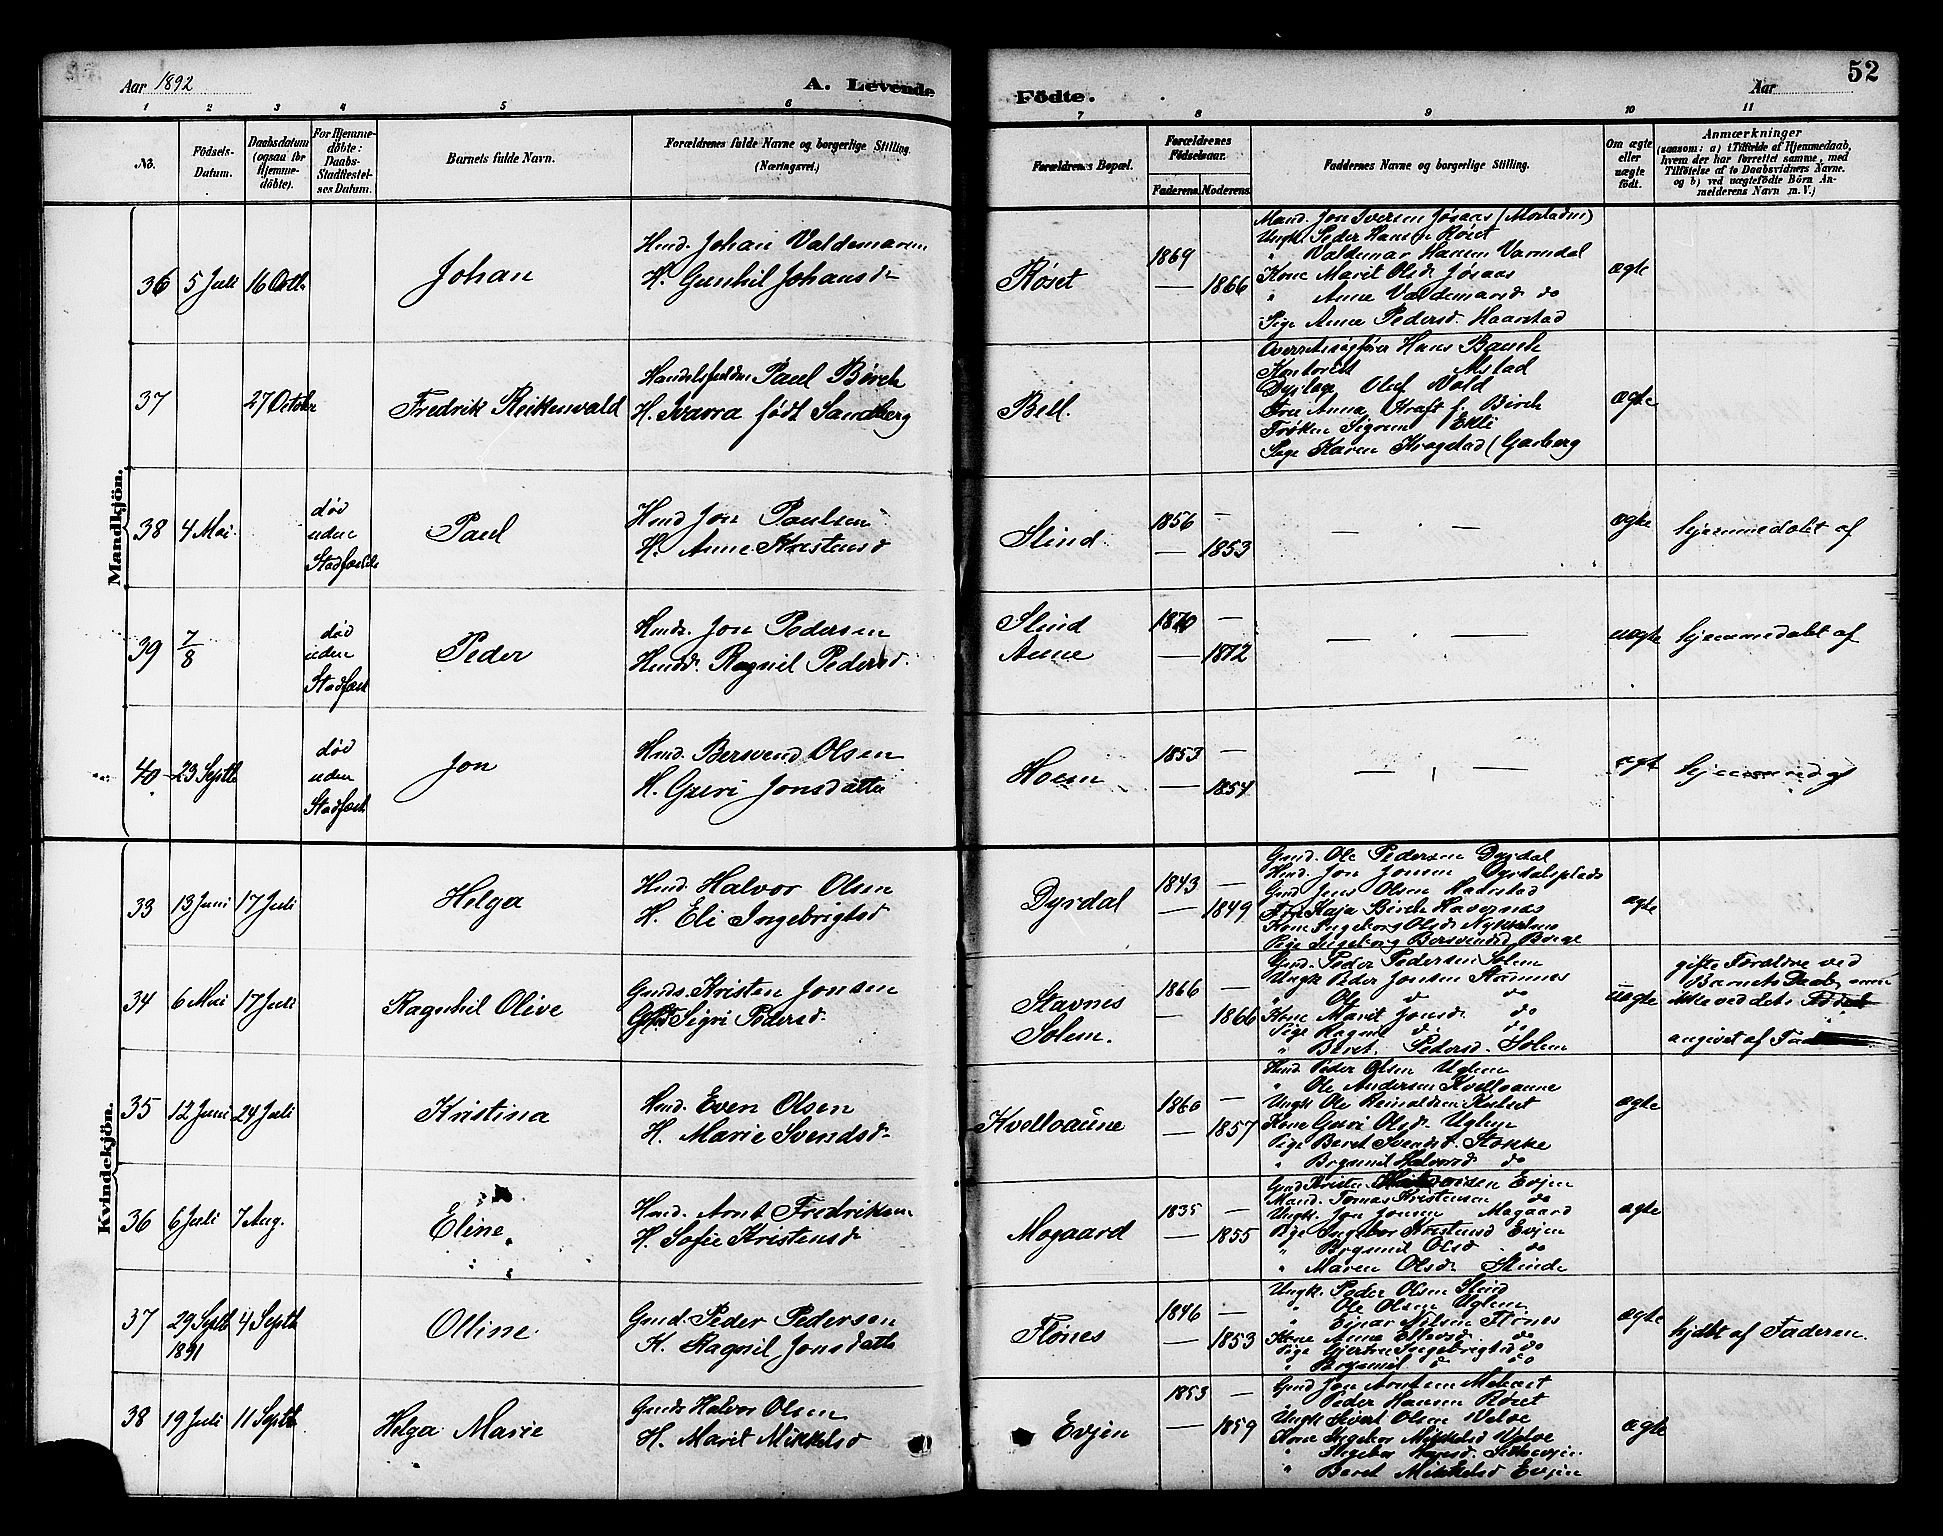 Aar 1892
A. Levende
Födte.
Aar
52
1 2 3 4 5 6 7 8 9 10 11
No.
Födsels-
Datum.
Daabsdatum
(ogsaa for
Hjemme-
döbte).
For Hjemme-
döbte:
Daabs-
Stadfæstel-
ses Datum.
Barnets fulde Navn.
Forældrenes fulde Navne og borgerlige Stilling.
(Næringsvei.)
Forældrenes Bopæl.
Forældrenes
Födselsaar.
Faderens. Moderens.
Faddernes Navne og borgerlige Stilling.
Om ægte
eller
uægte
födt.
Anmærkninger
(saasom: a) i Tilfælde af Hjemmedaab,
hvem der har forrettet samme, med
Tilföielse af to Daabsvidners Navne.
og b) ved uægtefödte Börn An-
melderens Navn m. V.)
Mandkjön.
36 5 Juli 16 Octb.
Johan
Hmd. Johan Valdemarsen
H. Gunhil Johansd
Røset
1869
— 1866
Mand. Jon Iversen Jøsaas (Mostadm)
Ungk. Peder Hansen Røset
" Valdemar Hansen Varmdal
Kone Marit Olsd. Jøsaas
" Anne Valdemarsd do
Pige Anne Pedersd. Haarstad
ægte
37 27 October
Fredrik Reikenvald
Paul Birch
H. Svavra født Sandberg
Bell.
Overretssagfører Hans Bauck
Kontorist Mstad
Oluf Wold
Frue Anna Kraft f. Birch
Frøken Sigrun Ekli
Pige Karen Kragstad (Garberg
ægte
38 4 Mai
død
uden
Stadfæstelse
Paul
Hmd Jon Paulsen
H. Anne Kristensd
Slind
1856 —
— 1853
— —
ægte
hjemmedøbt af
39 7/8
død
uden
Stadfæst
Peder
Hmds. Jon Pedersen
Hmdd. Ragnil Pedersd.
Slind
Aune
1870 —
— 1872
— . —
uægte
hjemmedøbt af
40 23 Septb
død
uden
Stadfæst
Jon
Hmd. Bersvend Olsen
H. Guri Jonsdatte
Hoem
1853 —
— 1854
— —
ægte
Kvindekjön.
33 13 Juni 17 Juli
Helga
Hmd. Halvor Olsen
H. Eli Ingebrigtsd
Dyrdal
1843 —
— 1849
Gmd. Ole Pedersen Dyrdal
Hmd. Jon Jonsen Dyrdalsplads
Gmd Jens Olsen
Frue Kaja Birch
Kone Ingeborg Olsd.
Pige Ingeborg Bersvendsd Borge
ægte
34 6 Mai 17 Juli
Ragnhil Olive
Gmds. Kristen Jonsen
Gmdd Sigri Pedersd.
Stavnes
Solem.
1866 —
— 1866
Gmd. Peder Pedersen Solem
Ungk Peder Jonsen Stavnes
" Ole do do
Kone Marit Jonsd. do
Pige Ragnil do do
" Beret. Pedersd. Solem
uægte
gifte Forældre ved
Barnets Daab, men
ikke ved dets
angivet af
35 12 Juni 24 Juli
Kristina
Hmd. Even Olsen
H. Marie Svendsd
Kvelloaune
1860 —
— 1857
Hmd Peder Olsen Uglem
" Ole Andersen Kvelloaune
Ungk Ole Reinaldsen Kulset
Kone Guri Olsd. Uglem
Pige Beret Svendsd. Stokke
" Brynhil Halvorsd do
ægte
36 6 Juli 7 Aug.
Eline
Hmd. Arnt Fredriksen
H. Sofie Kristensd
Mogaard
1835 —
— 1855
Gmd Kristen Evjen
Mand. Tomas Kristensen do
Ungk. Jon Jonsen Mogaard
Pige Ingebor Kristensd Evjen
" Brynhil Olsd. do
" Maren Olsd. Slinde
ægte
37 29 Septb 4 Septb
1891
Olline
Gmd. Peder Pedersen
H. Ragnil Jonsdatte
Flønes
1846 —
— 1853
Ungk. Peder Olsen Slind
" Ole Olsen Uglem
" Einar Nilsen Flønes
Kone Anne Estensd. do
Pige Gjertru Ingebrigtsd do
" Brynhil do do
ægte
hjdbt af Faderen.
38 19 Juli 11 Septb
Helga Marie
Gmds Halvor Olsen
H. Marit Mikkelsd
Evjen
1853 —
— 1859
Gmd Jon Arntsen
" Peder Hansen Røset
Ungk Sivert Olsen Velve
Kone Ingebor Mikkelsd Velve
" Ingebor
" Beret Mikkelsd Evjen
ægte